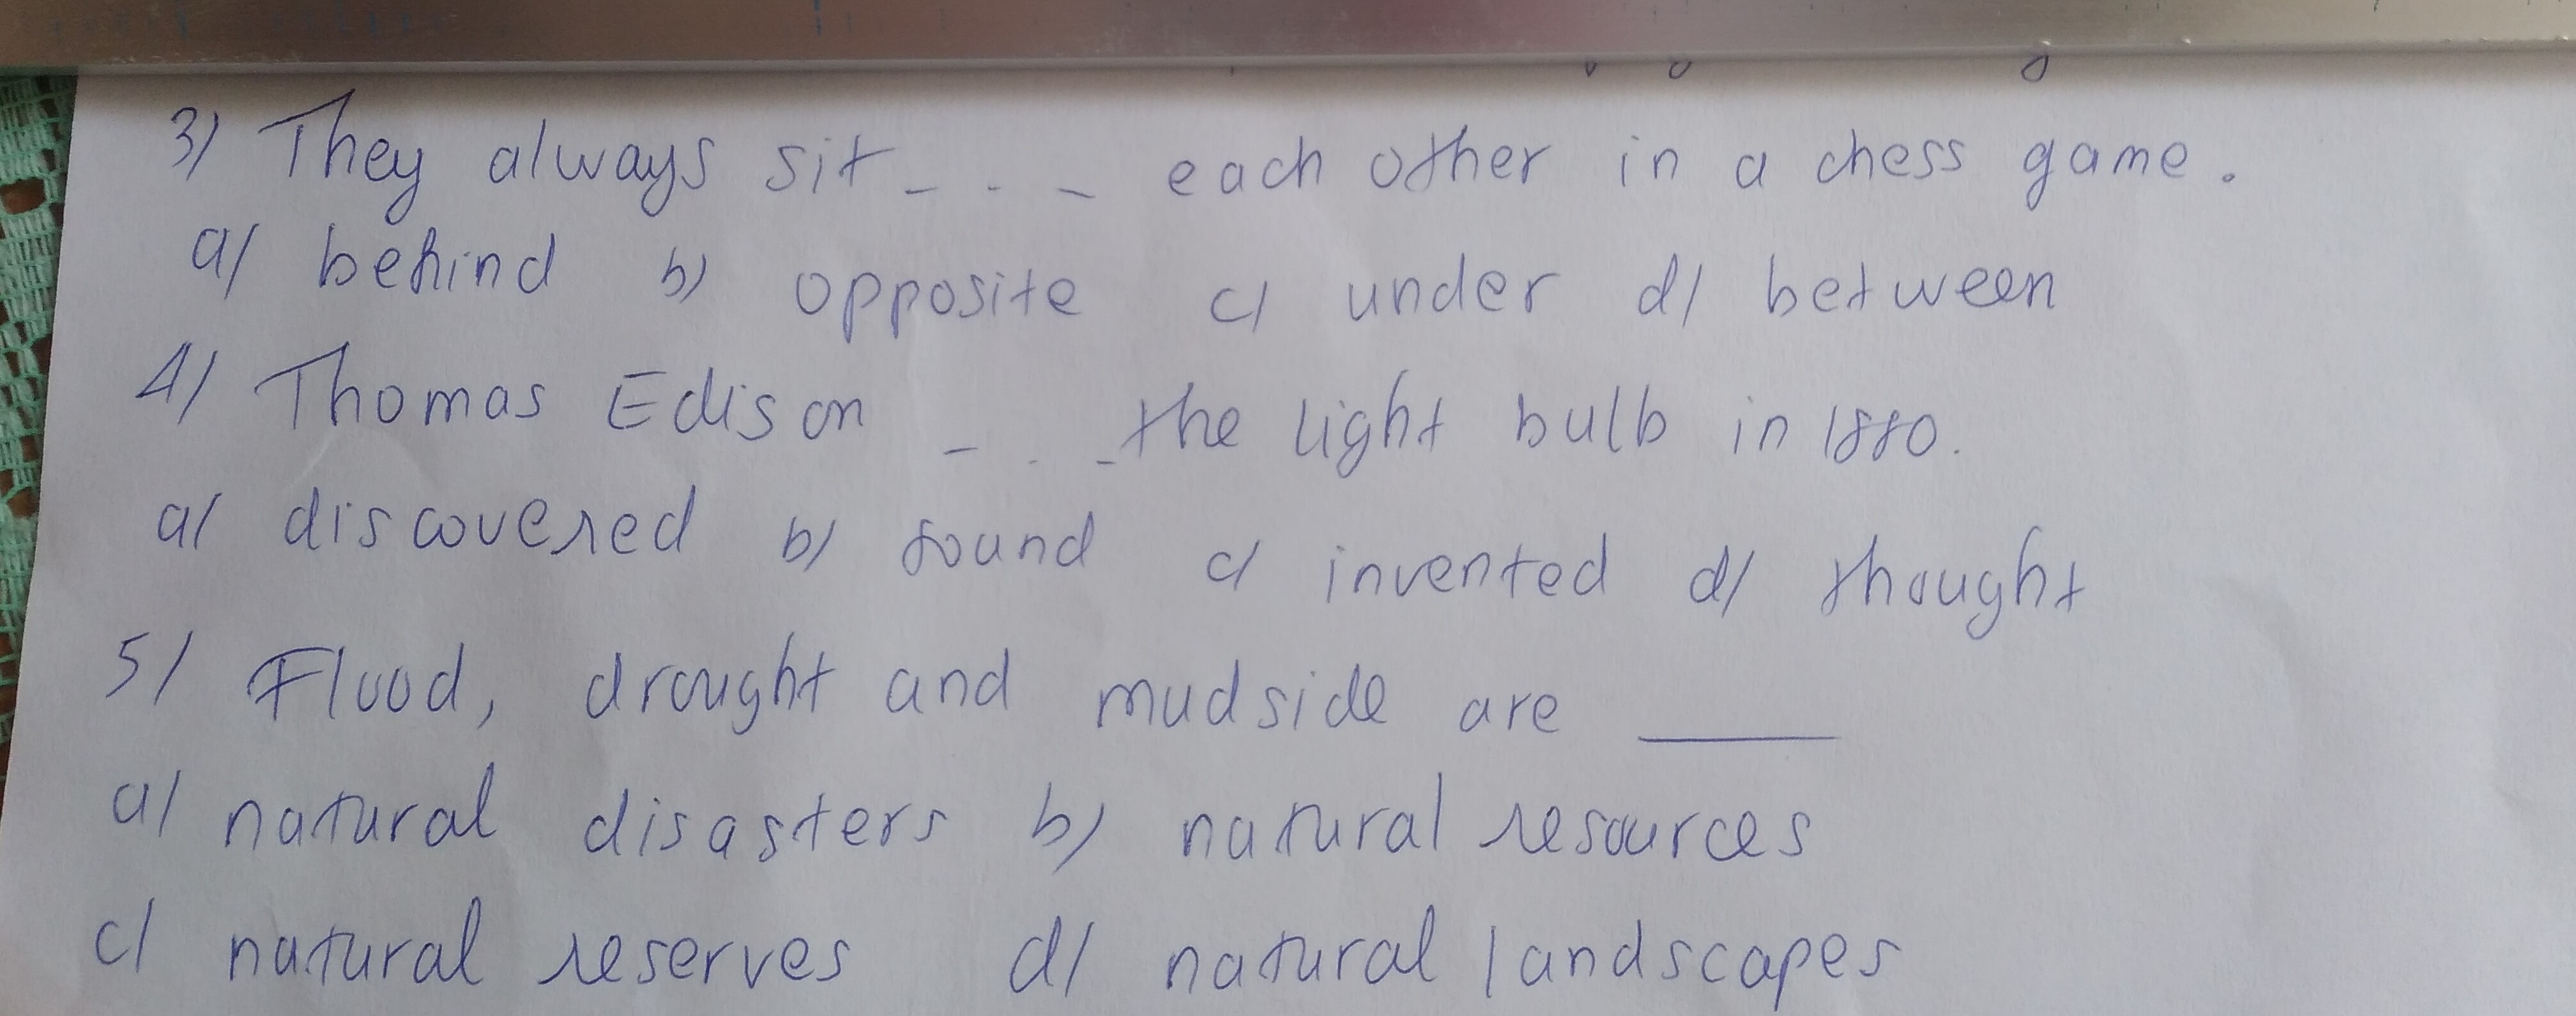 3) They always sit _ . _ each other in a chess game.
a/ behind b) opposite c/ under d/ between
4/ Thomas Edison _ . _ the light bulb in 1880.
a/ discovered b/ found c/ invented d/ thought
5/ Flood, drought and mudside are ____
a/ natural disasters b) natural resources
c/ natural reserves d/ natural landscapes